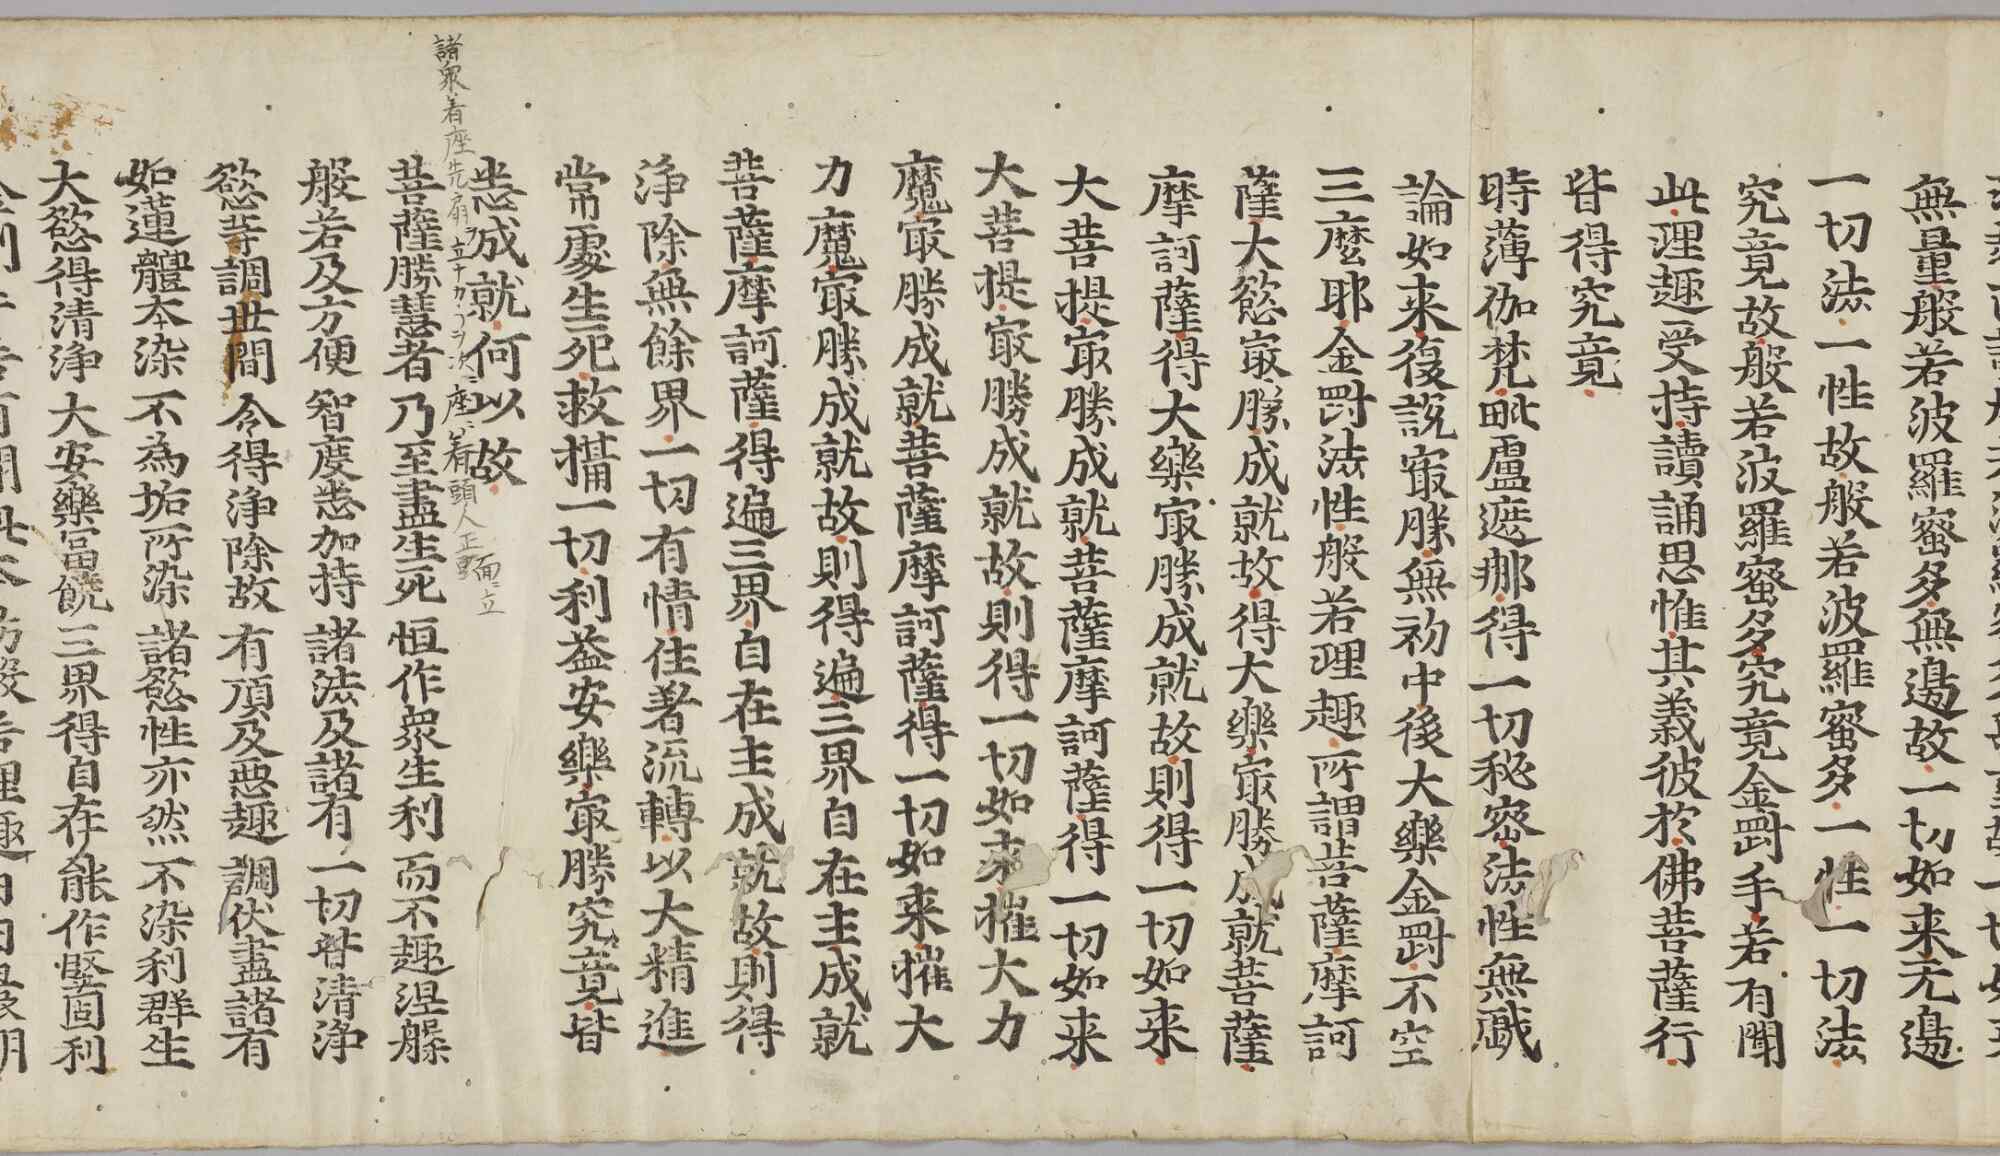 無量般若波羅蜜多無邊故一切如来无邊
一切法一性故般若波羅蜜多一性一切法
究竟故般若波羅蜜多究竟金剛手若有聞
此理趣受持讀誦思惟其義彼於佛菩薩行
皆得究竟
時薄伽梵毗盧遮那得一切秘密法性無戯
論如来復說最勝無初中後大樂金剛不空
三麼耶金剛法性般若理趣所謂菩薩摩訶
薩大慾最勝成就故得大樂最勝成就菩薩
摩訶薩得大樂最勝成就故則得一切如来
大菩提最勝成就菩薩摩訶薩得一切如来
大菩提最勝成就故則得一切如来摧大力
魔最勝成就菩薩摩訶薩得一切如来摧大
力魔最勝成就故則得遍三界自在主成就
菩薩摩訶薩得遍三界自在主成就故則得
淨除無餘界一切有情住著流轉以大精進
常處生死救攝一切利益安樂最勝究竟皆
悉成就何以故
諸衆着座先扇ヲ立十カラヲ次ニ座ニ着頭人正面ニ立
菩薩勝慧者 乃至盡生死 恒作衆生利 而不趣涅槃
般若及方便 智度悉加持 諸法及諸有 一切皆清淨
慾等調世間 令得淨除故 有頂及惡趣 調伏盡諸有
如蓮體本染 不為垢所染 諸慾性亦然 不染利群生
大慾得清淨 大安樂富饒 三界得自在 能作堅固利